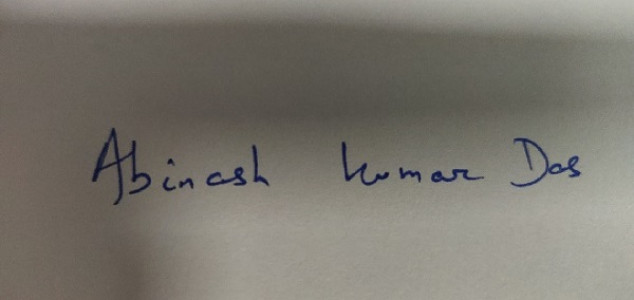 Abinash Kumar Das